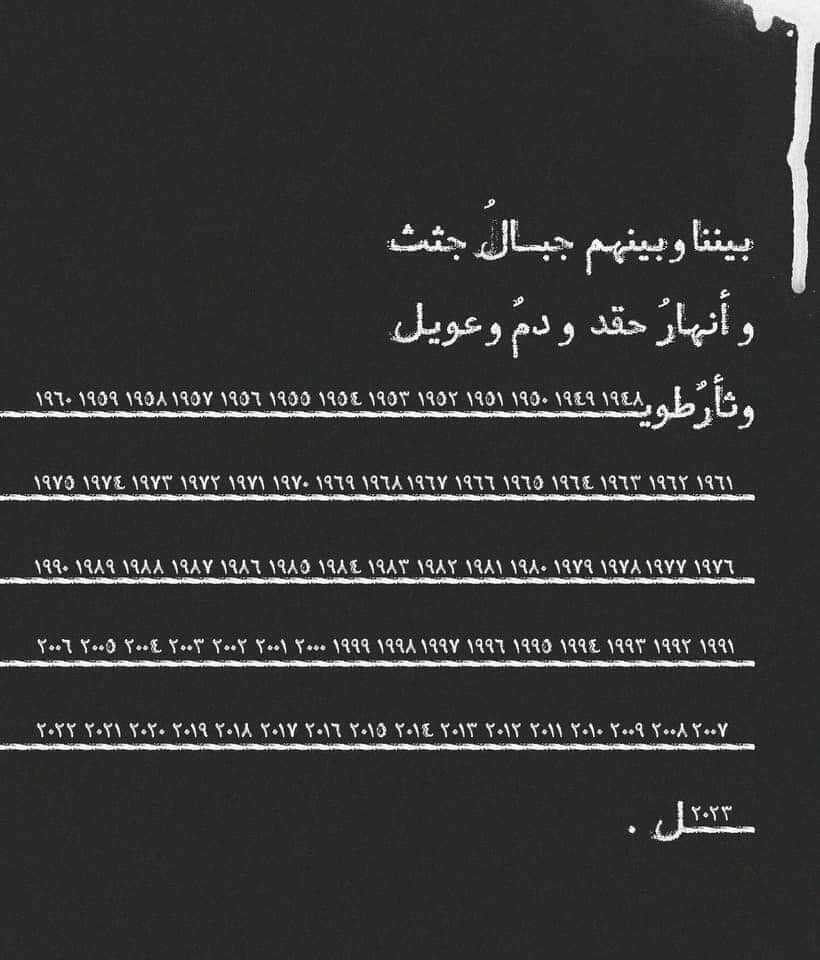 بيننا وبينهم جبـالُ جثث
و أنهارُ حقد و دمٌ وعويل
وثأرٌ طويـ ١٩٤٨ ١٩٤٩ ١٩٥٠ ١٩٥١ ١٩٥٢ ١٩٥٣ ١٩٥٤ ١٩٥٥ ١٩٥٦ ١٩٥٧ ١٩٥٨ ١٩٥٩ ١٩٦٠
١٩٦١ ١٩٦٢ ١٩٦٣ ١٩٦٤ ١٩٦٥ ١٩٦٦ ١٩٦٧ ١٩٦٨ ١٩٦٩ ١٩٧٠ ١٩٧١ ١٩٧٢ ١٩٧٣ ١٩٧٤ ١٩٧٥
١٩٧٦ ١٩٧٧ ١٩٧٨ ١٩٧٩ ١٩٨٠ ١٩٨١ ١٩٨٢ ١٩٨٣ ١٩٨٤ ١٩٨٥ ١٩٨٦ ١٩٨٧ ١٩٨٨ ١٩٨٩ ١٩٩٠
١٩٩١ ١٩٩٢ ١٩٩٣ ١٩٩٤ ١٩٩٥ ١٩٩٦ ١٩٩٧ ١٩٩٨ ١٩٩٩ ٢٠٠٠ ٢٠٠١ ٢٠٠٢ ٢٠٠٣ ٢٠٠٤ ٢٠٠٥ ٢٠٠٦
٢٠٠٧ ٢٠٠٨ ٢٠٠٩ ٢٠١٠ ٢٠١١ ٢٠١٢ ٢٠١٣ ٢٠١٤ ٢٠١٥ ٢٠١٦ ٢٠١٧ ٢٠١٨ ٢٠١٩ ٢٠٢٠ ٢٠٢١ ٢٠٢٢
٢٠٢٣ ـل .